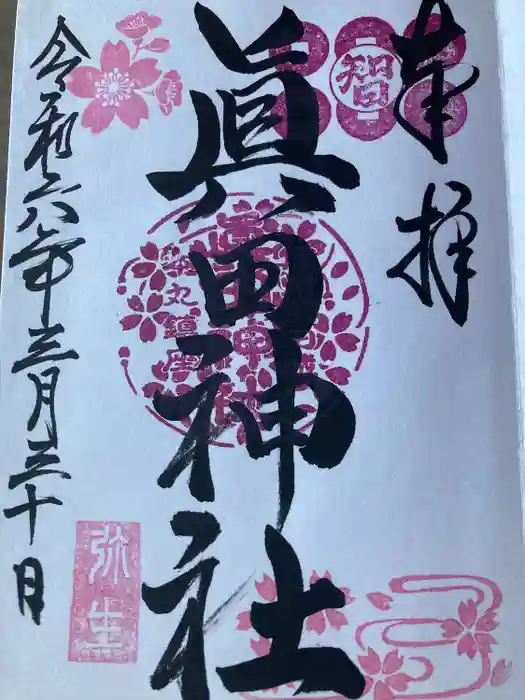 奉拝
智
眞田神社
丸鎮座
令和六年三月三十日
弥生